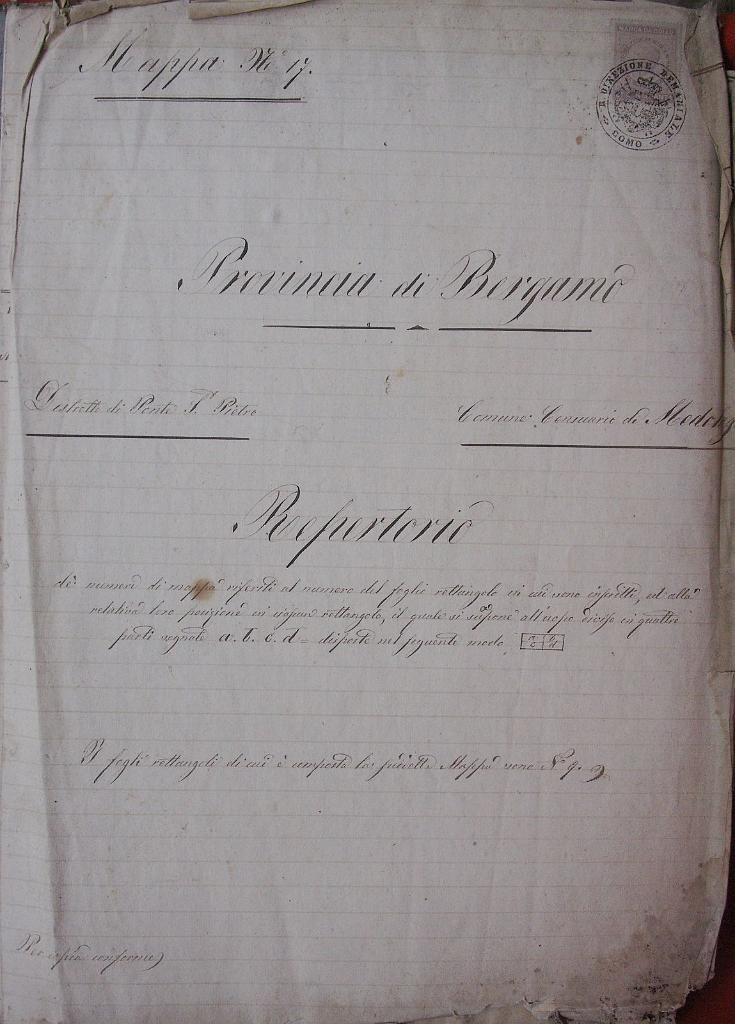 Mappa N.º 17.
MARCA DA BOLLO
R. DIREZIONE DEMANIALE
COMO
Provincia di Bergamo
Distretto di Ponte S. Pietro
Comune Censuario di Medo
Repertorio
de' numeri di mappa riferiti al numero del foglio rettangolo in cui sono inseriti, ed alla
relativa loro posizione in ciascun rettangolo, il quale si suppone all'uopo diviso in quattro
parti segnate a. b. c. d = disposte nel seguente modo a b c d
I fogli rettangoli di cui è composta la suddetta Mappa sono N.º 9.
Per copia conforme